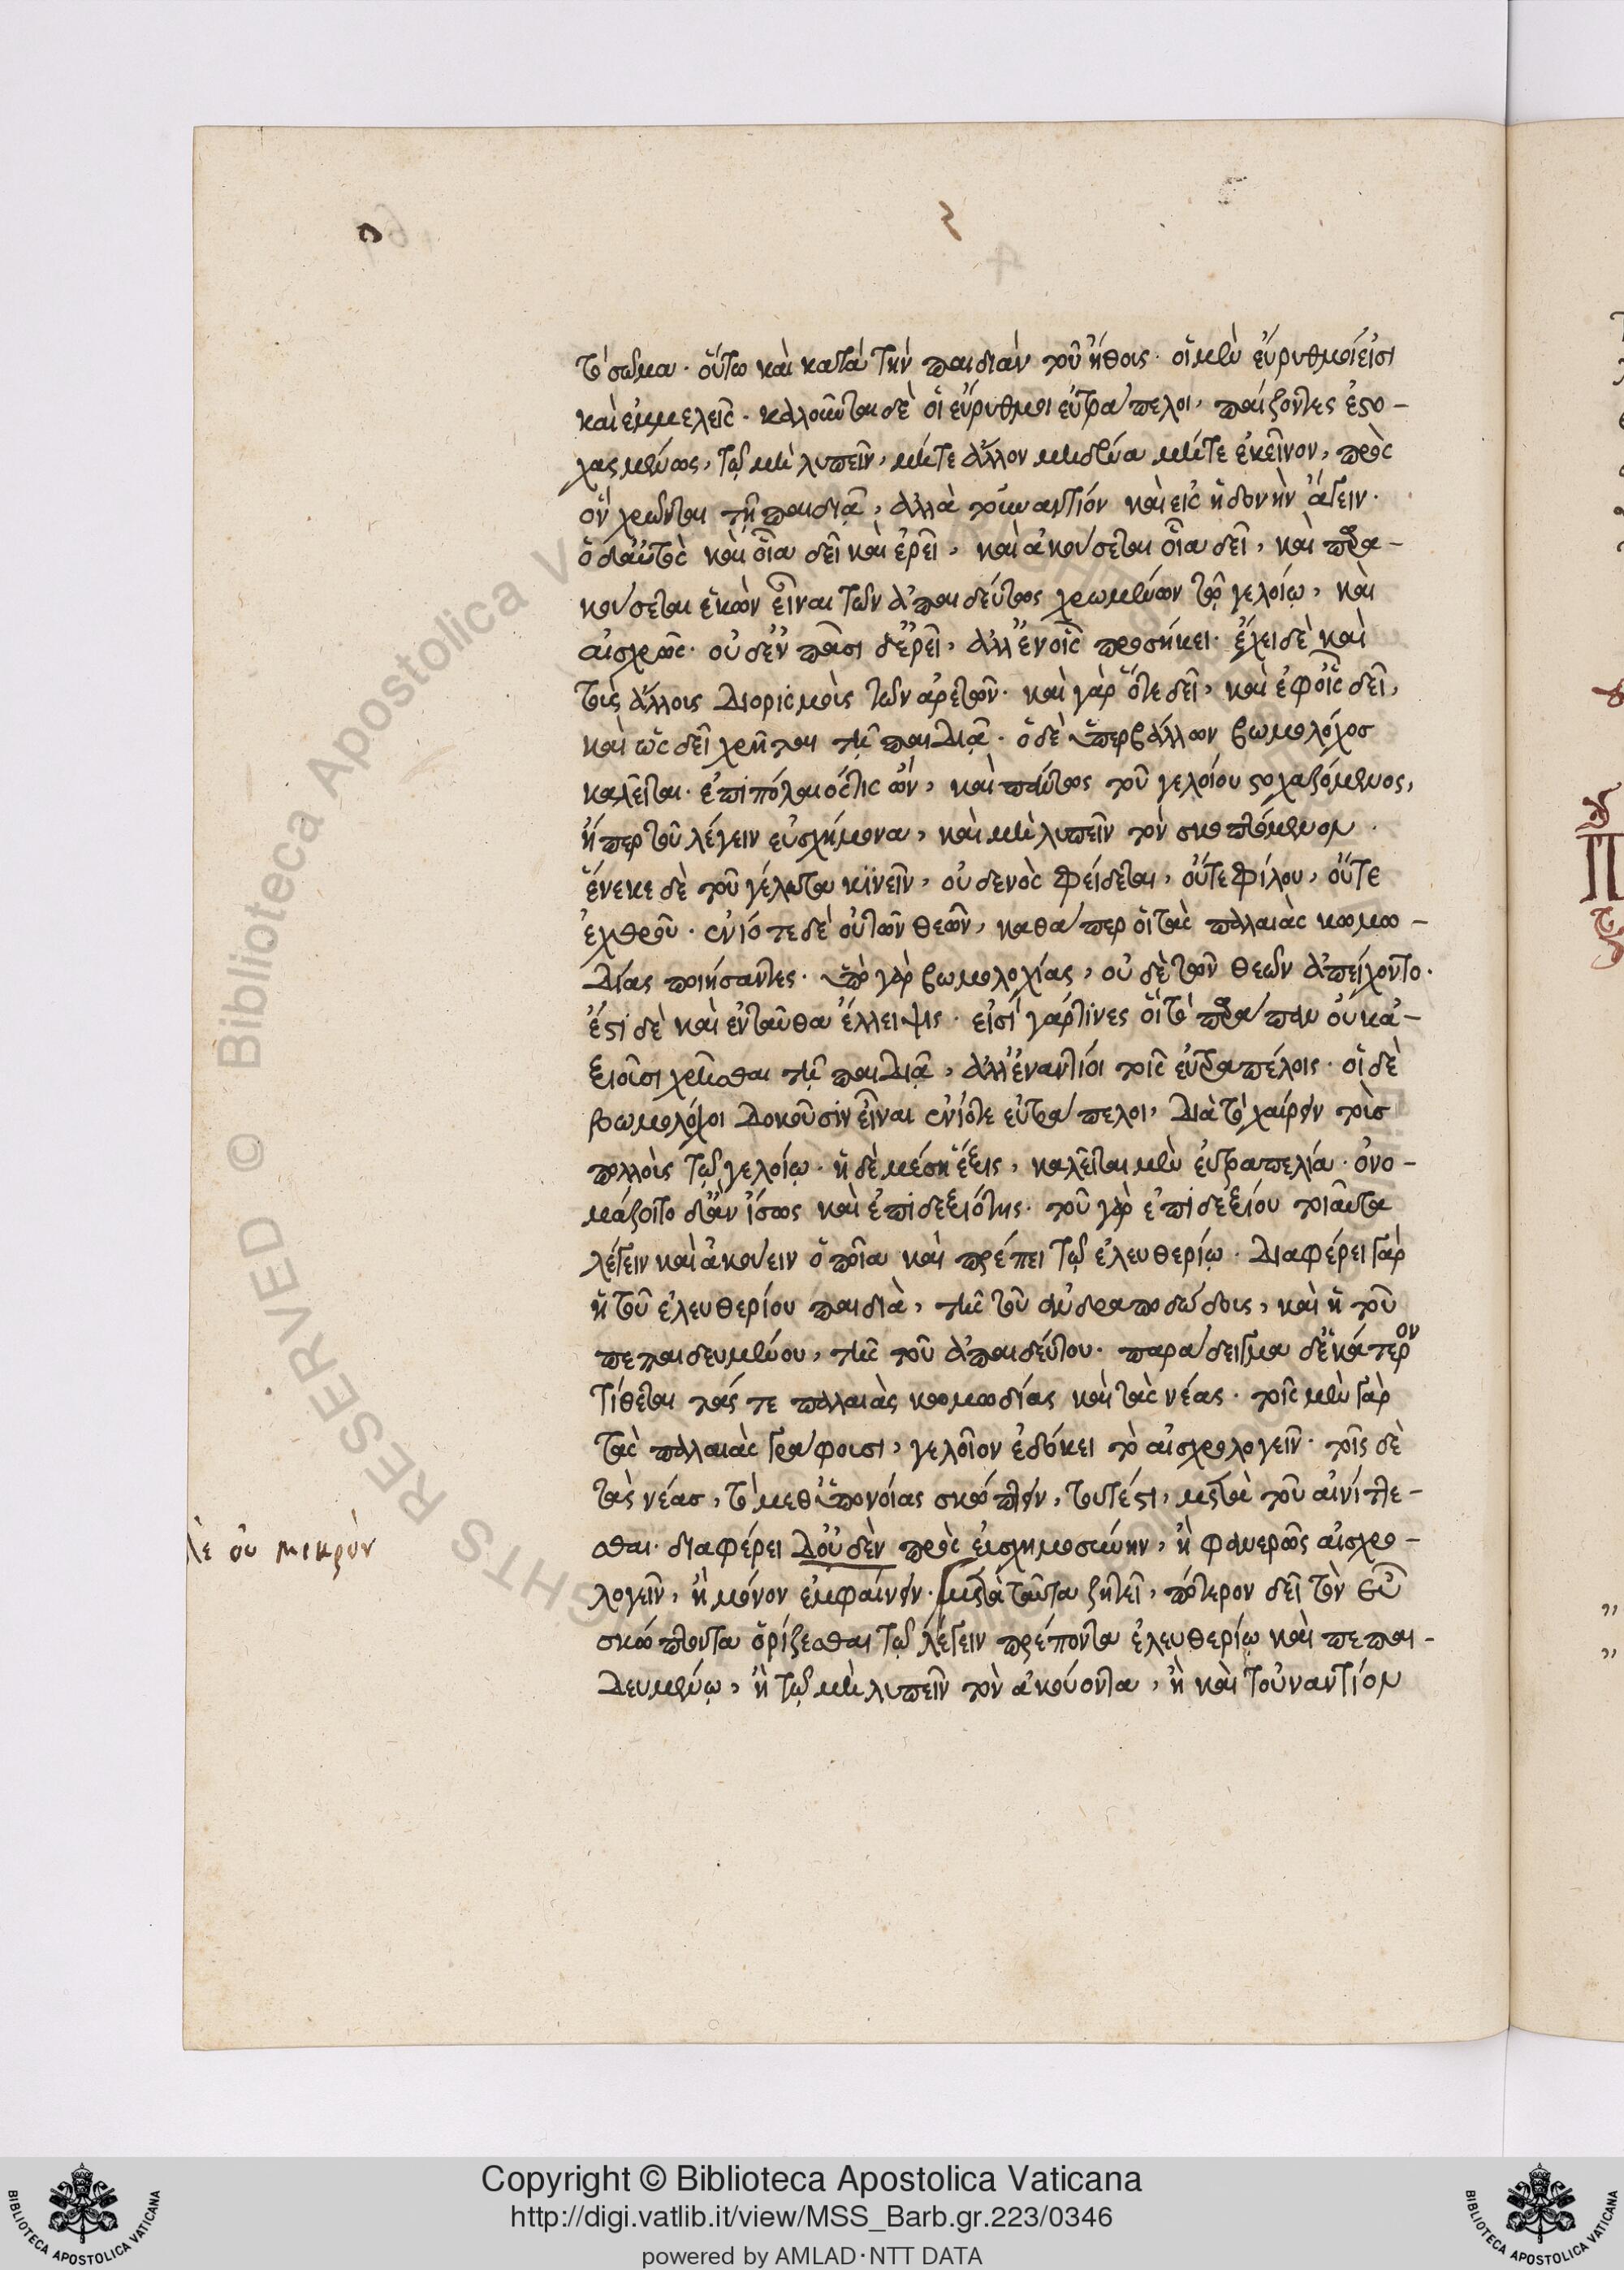 τὸ σῶμα· οὕτω καὶ κατὰ τὴν παιδιὰν τοῦ ἤθους· οἱ μὲν εὔρυθμοί εἰσι
καὶ ἐμμελεῖς· καλοῦνται δὲ οἱ εὔρυθμοι εὐτράπελοι, παίζοντες ἐστο-
χασμένως, τῷ μὴ λυπεῖν, μήτε ἄλλον μηδένα μήτε ἐκεῖνον, πρὸς
ὃν χρῶνται τῇ παιδιᾷ, ἀλλὰ τοὐναντίον καὶ εἰς ἡδονὴν ἄγειν·
ὁ δ' αὐτὸς καὶ οἷα δεῖ καὶ ἐρεῖ, καὶ ἀκούσεται οἷα δεῖ, καὶ παρα-
κούσεται ἑκὼν εἶναι τῶν ἀπαιδεύτως χρωμένων τῷ γελοίῳ, καὶ
αἰσχρῶς· οὐδ' ἐν πᾶσι δ' ἐρεῖ, ἀλλ' ἐν οἷς προσήκει· ἔχει δὲ καὶ
τοὺς ἄλλους διορισμοὺς τῶν ἀρετῶν· καὶ γὰρ ὅτε δεῖ, καὶ ἐφ' οἷς δεῖ,
καὶ ὡς δεῖ χρῆται τῇ παιδιᾷ· ὁ δὲ ὑπερβάλλων βωμολόχος
καλεῖται· ἐπιπόλαιός τις ὢν, καὶ πάντως τοῦ γελοίου στοχαζόμενος,
ἤπερ τοῦ λέγειν εὐσχήμονα, καὶ μὴ λυπεῖν τὸν σκοπτόμενον·
ἕνεκε δὲ τοῦ γέλωτα κινεῖν, οὐδενὸς φείδεται, οὔτε φίλου, οὔτε
ἐχθροῦ· ἐνίοτε δὲ οὐ τῶν θεῶν, καθάπερ οἱ τὰς παλαιὰς κωμω-
δίας ποιήσαντες· ὑπὸ γὰρ βωμολοχίας, οὐδὲ τῶν θεῶν ἀπείχοντο·
ἔστι δὲ καὶ ἐνταῦθα ἔλλειψις· εἰσὶ γάρ τινες οἳ τὸ παράπαν οὐκ ἀ-
ξιοῦσι χρῆσθαι τῇ παιδιᾷ, ἀλλ' ἐναντίοι τοῖς εὐτραπέλοις· οἱ δὲ
βωμολόχοι δοκοῦσιν εἶναι ἐνίοτε εὐτράπελοι, διὰ τὸ χαίρειν τοὺς
πολλοὺς τῷ γελοίῳ· ἡ δὲ μέση ἕξις, καλεῖται μὲν εὐτραπελία· ὀνο-
μάζοιτο δ' ἂν ἴσως καὶ ἐπιδεξιότης· τοῦ γὰρ ἐπιδεξίου τοιαῦτα
λέγειν καὶ ἀκούειν ὁποῖα καὶ πρέπει τῷ ἐλευθερίῳ· διαφέρει γὰρ
ἡ τοῦ ἐλευθερίου παιδιὰ, τῆς τοῦ ἀνδραποδώδους, καὶ ἡ τοῦ
πεπαιδευμένου, τῆς τοῦ ἀπαιδεύτου· παράδειγμα δ' ἑκάτερον
τίθεται τάς τε παλαιὰς κωμωδίας καὶ τὰς νέας· τοῖς μὲν γὰρ
τὰς παλαιὰς γράφουσι, γελοῖον ἐδόκει τὸ αἰσχρολογεῖν· τοῖς δὲ
τὰς νέας, τὸ μεθ' ὑπονοίας σκώπτειν, τουτέστι, μετὰ τοῦ αἰνίττε-
σθαι· διαφέρει δ' οὐδὲν πρὸς εὐσχημοσύνην, ἢ φανερῶς αἰσχρο-
λὲ οὐ μικρὸν
λογεῖν, ἢ μόνον ἐμφαίνειν· μετὰ ταῦτα ζητεῖ, πότερον δεῖ τὸν εὖ
σκώπτοντα ὁρίζεσθαι τῷ λέγειν πρέποντα ἐλευθερίῳ καὶ πεπαι-
δευμένῳ, ἢ τῷ μὴ λυπεῖν τὸν ἀκούοντα, ἢ καὶ τοὐναντίον
Copyright © Biblioteca Apostolica Vaticana
http://digi.vatlib.it/view/MSS_Barb.gr.223/0346
powered by AMLAD·NTT DATA
BIBLIOTECA APOSTOLICA VATICANA
BIBLIOTECA APOSTOLICA VATICANA